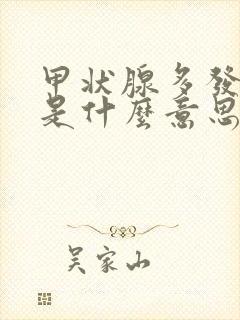 甲状腺多發
是什麼意思
吴家山